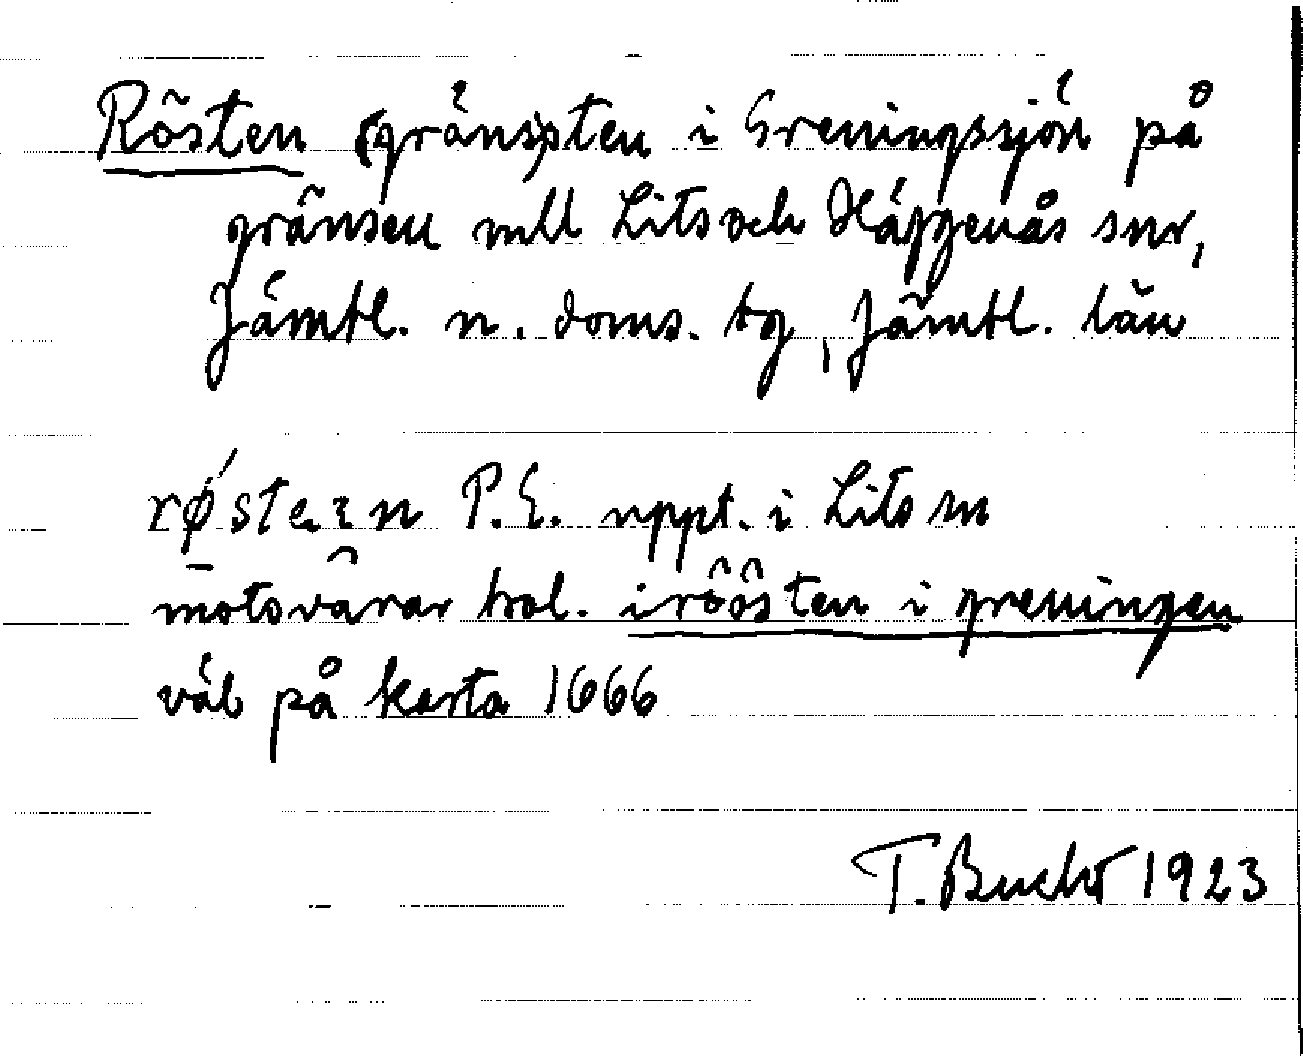 Rösten (gräns)sten i Greningssjön på
gränsen mll Lits och Häggenås snr,
Jämtl. n. doms. tg, Jämtl. län
P. E. uppt. i Lits sn
motsvarar bol. iröösten i greningen
väl på karta 1666
T. Bucht 1923